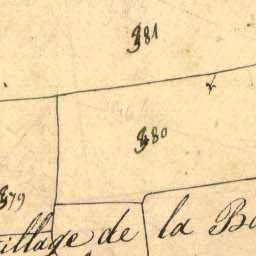 381
380
379
village de la Ba